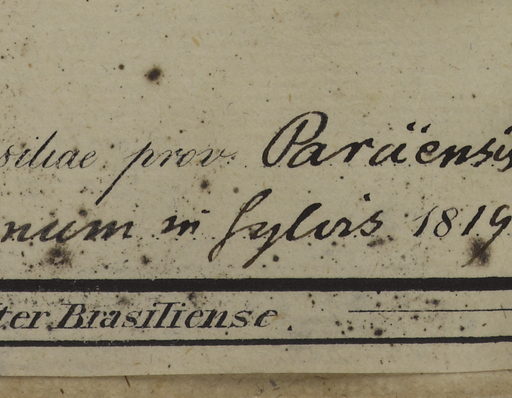 siliae prov. Paräensis
num in Sylvis 1819
ter Brasiliense.